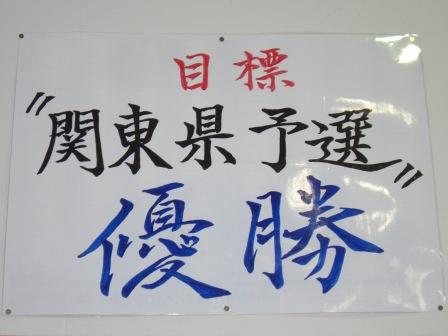 目標
〃関東県予選〃
優勝